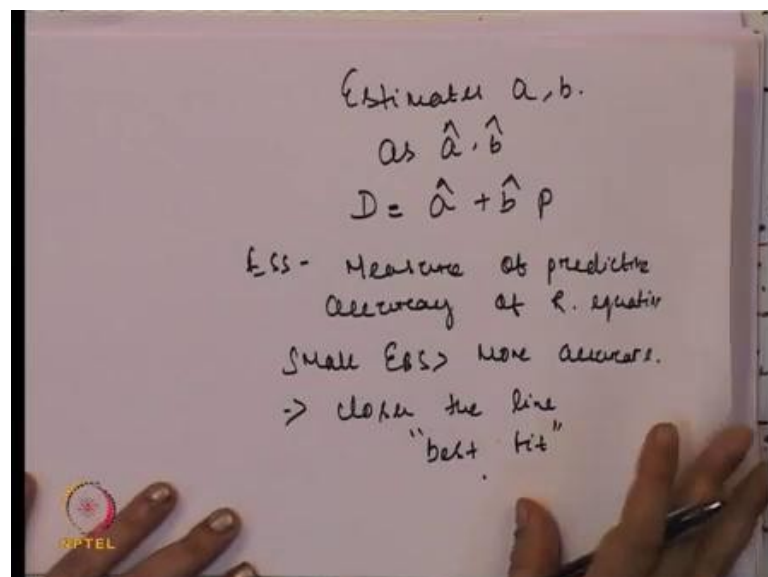 Estimates a, b.
as â, b̂
D = â + b̂ P
ESS - Measure of predictive
accuracy of R. equation
Small ESS > More accurate.
-> closer the line
"best fit"
NPTEL